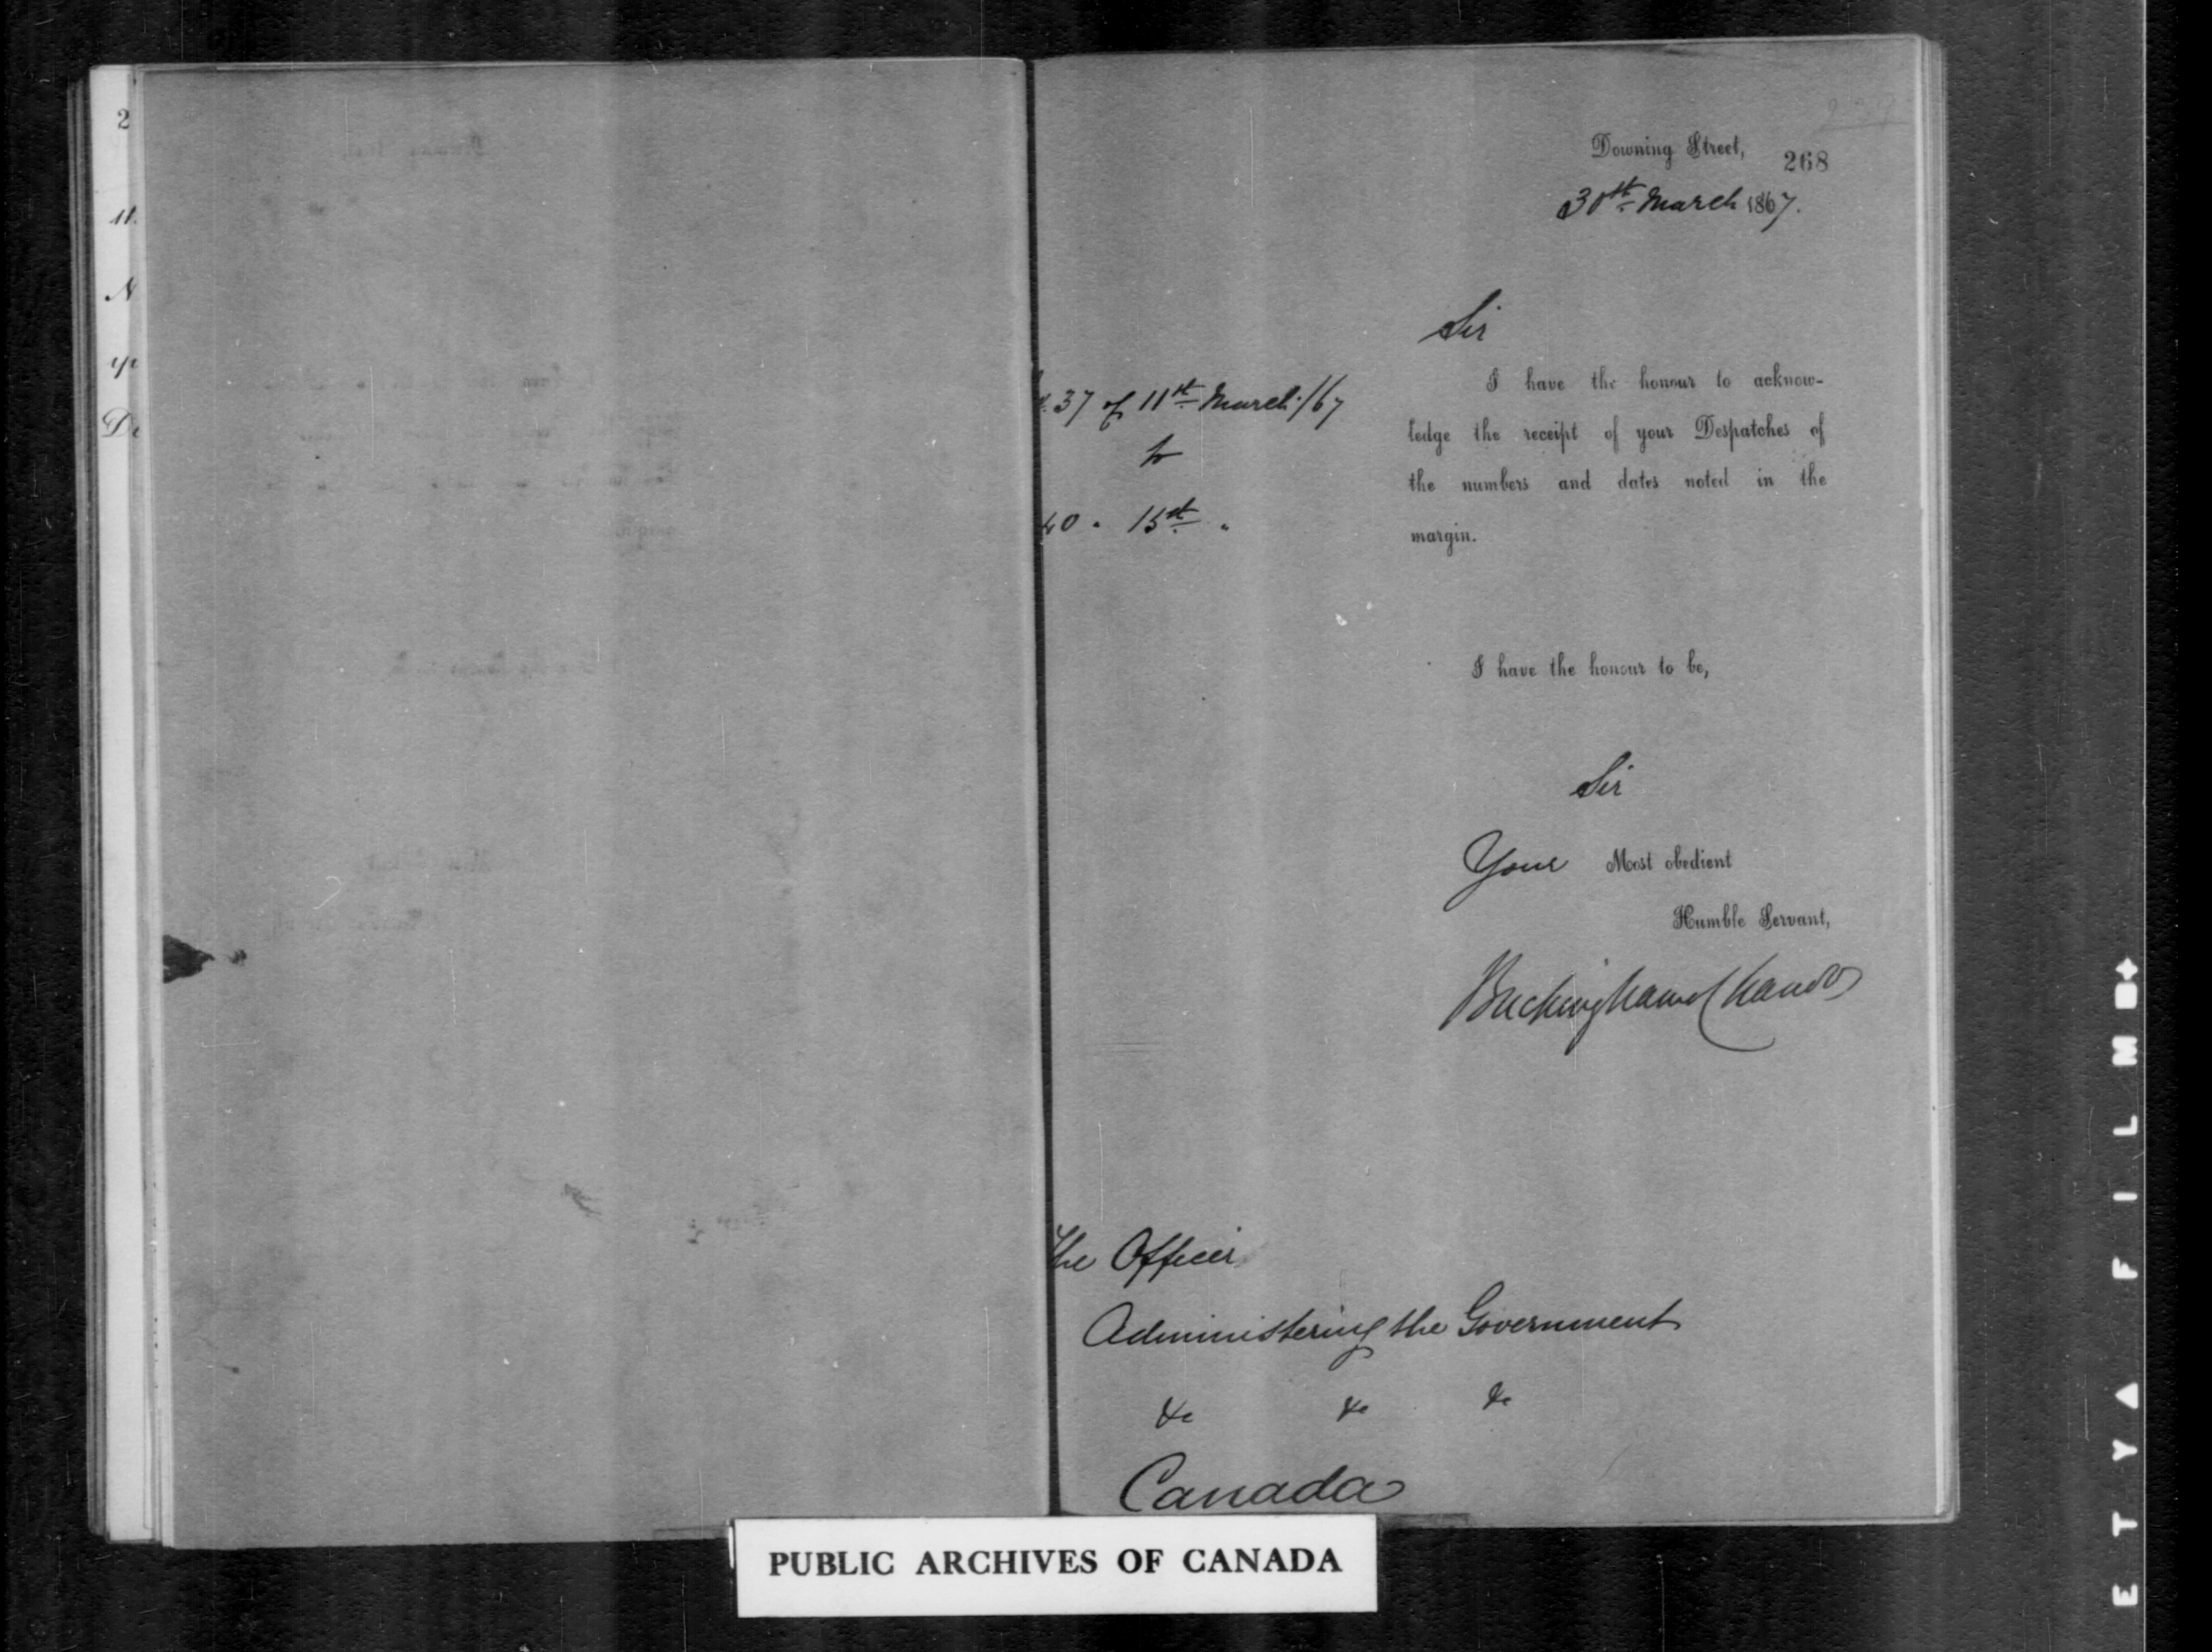 2
11.
N
Downing Street,
268
30th March 1867.
Sir
I have the honour to acknow-
ledge the receipt of your Despatches of
the numbers and dates noted in the
margin.
37 of 11st March/67
to
40 " 15st "
I have the honour to be,
Sir
Your Most obedient
Humble Servant,
Buckingham & Chandos
The Officer
Administering the Government
&c &c &c
Canada
PUBLIC ARCHIVES OF CANADA
SAFETY FILM